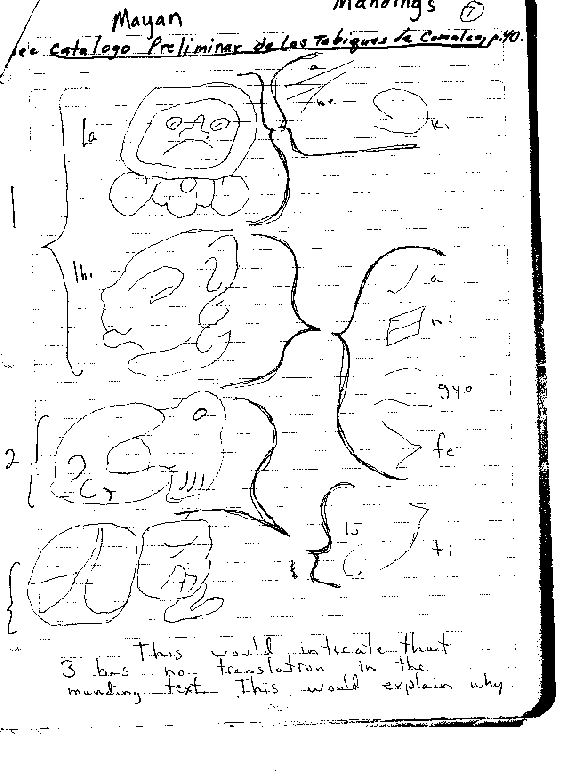 Mayan
Mandings 7
Catalogo Preliminar de los Tabiques de Comalco, p.40.
1
1a
a
ne
ki
1b.
a
ni
gyo
2
fe
15
ti
This would inticate that
3 has no translation in the
manding text This would explain why